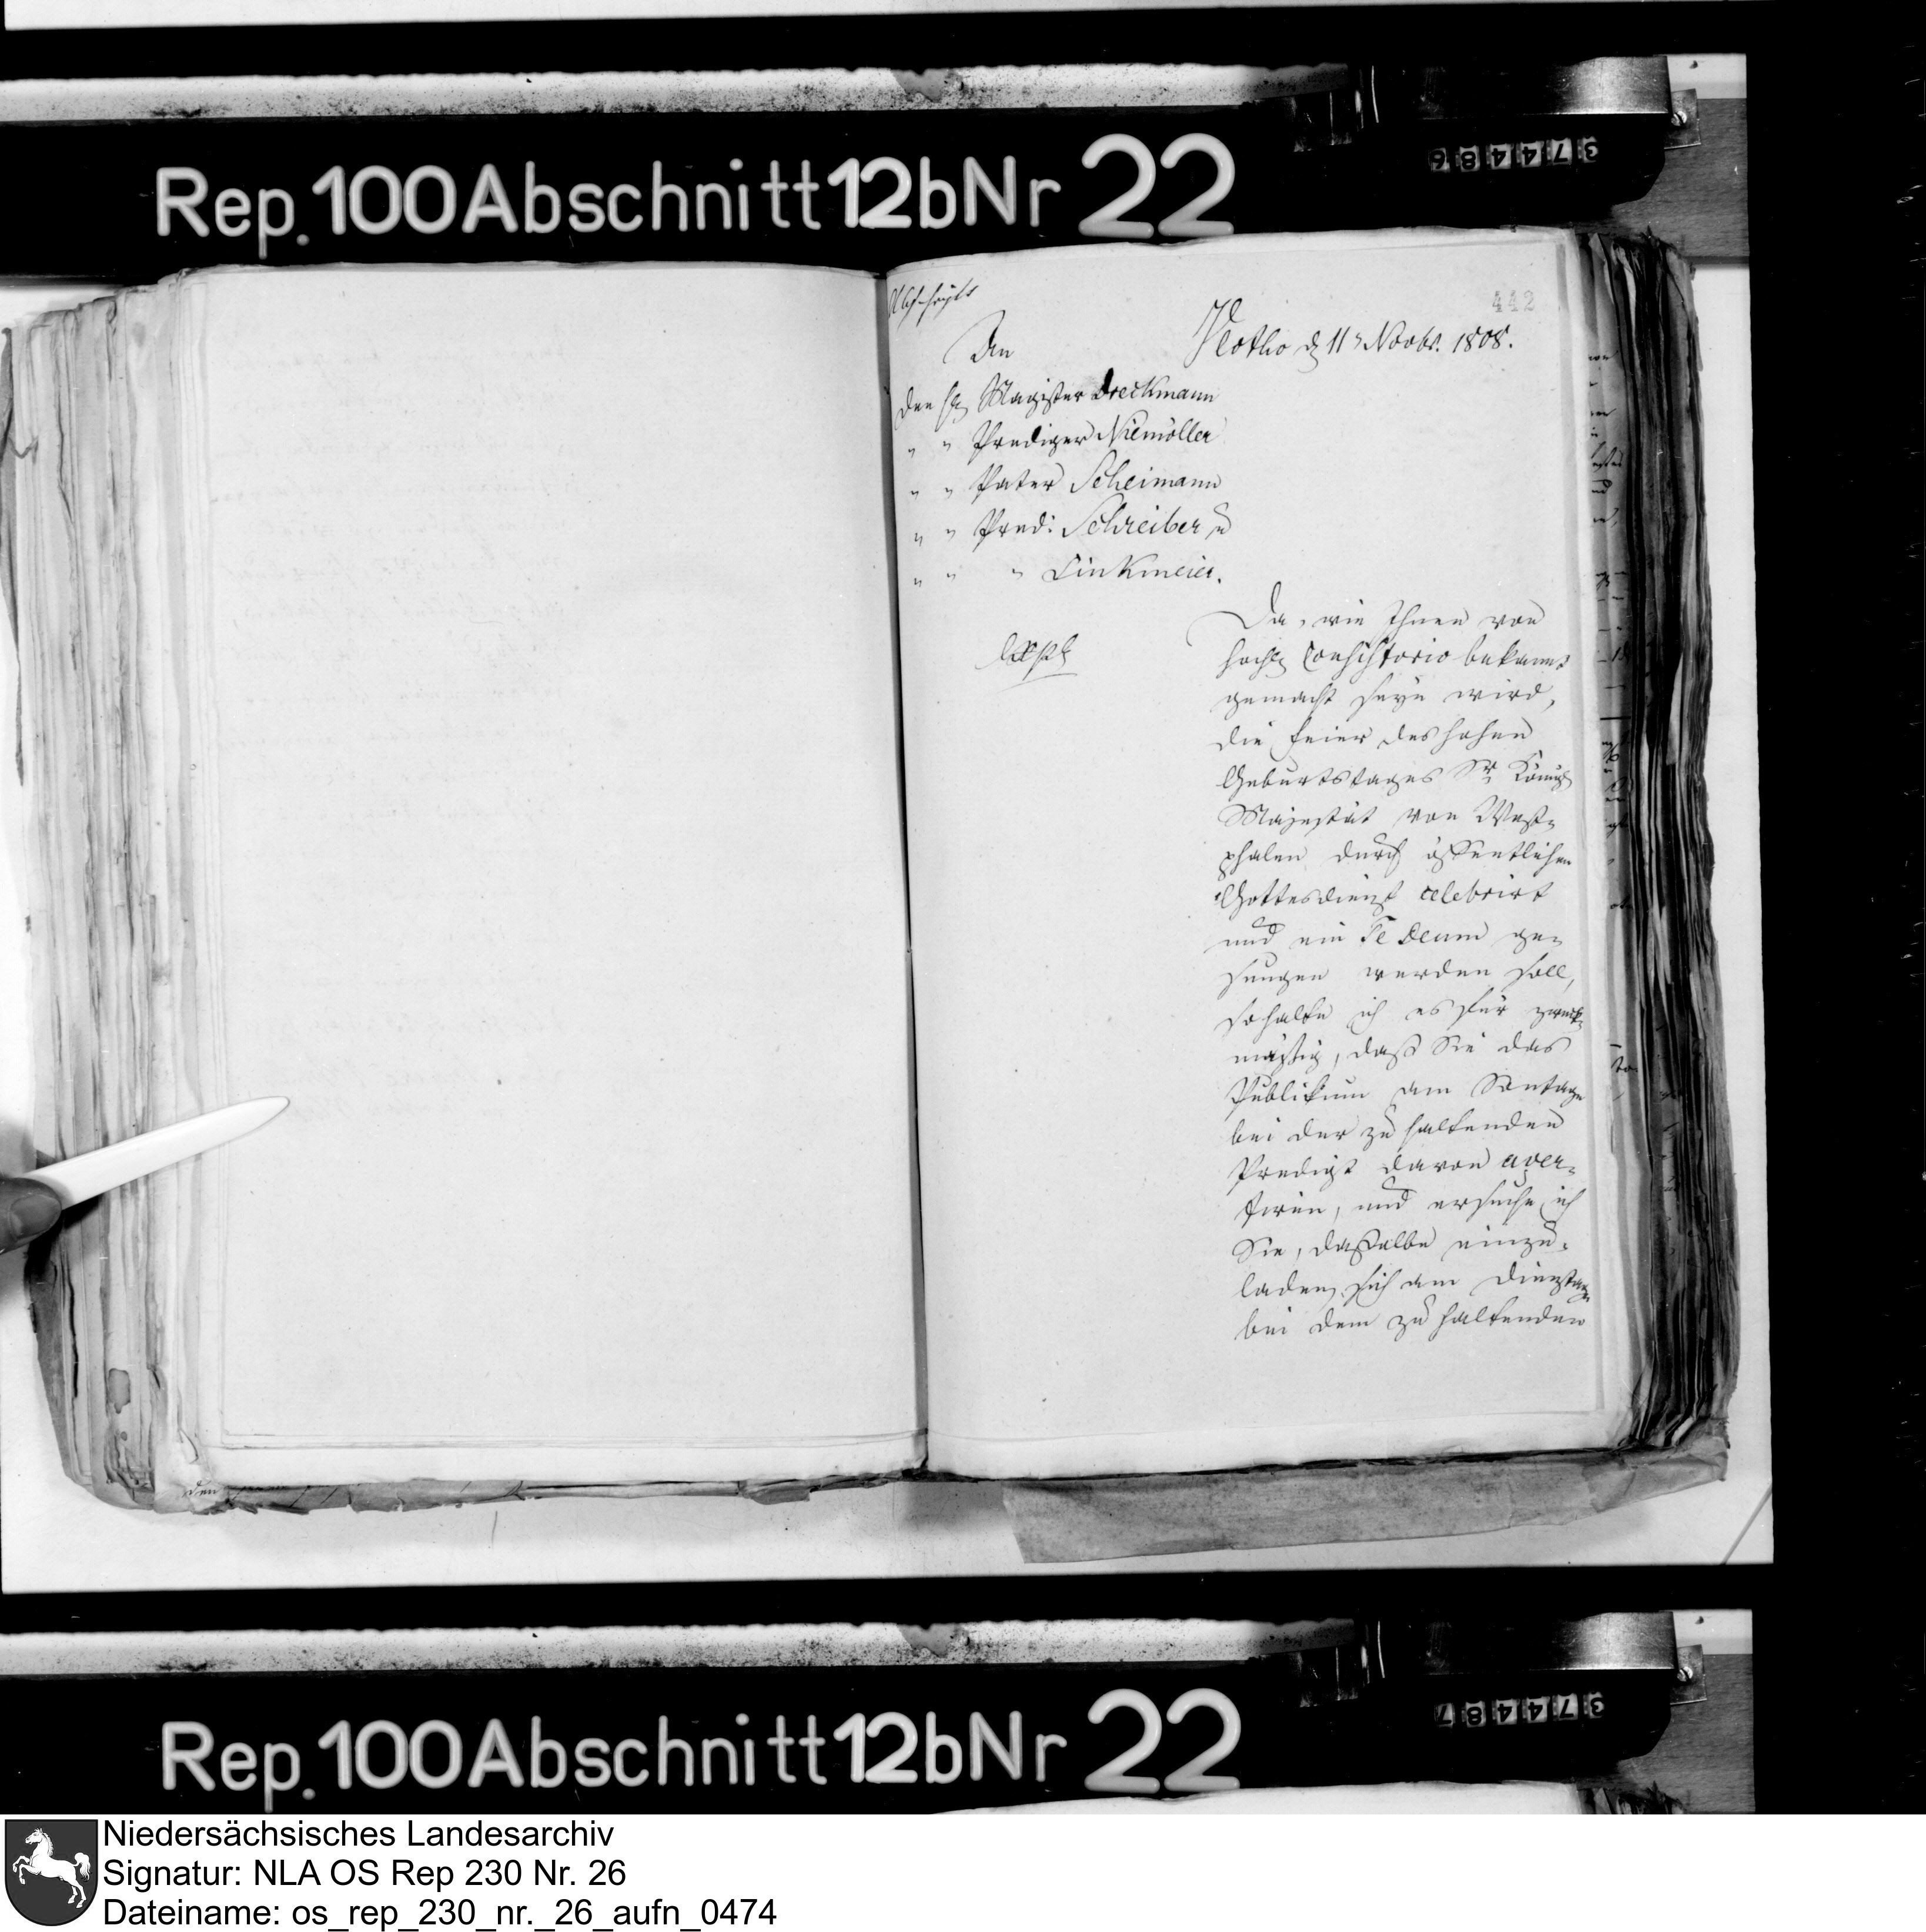 Rep. 100 Abschnitt 12b Nr 22
374486
442
Abschrift
Vlotho d 11t Novbr. 1808.
An
den H Magister Dreckmann
" " Prediger Niemöller
" " Pater Scheimann
" " Pred: Schreiber u
" " " Linkmeier.
Da, wie Ihnen von
hochl Consistorio bekannt
gemacht seyn wird,
die Feier des hohen
Geburtstages Sr Königl
Majestät von West-
phalen durch öffentlichen
Gottesdienst celebrirt
und ein Te Deum ge-
sungen werden soll,
so halte ich es für zweck-
mäßig, daß Sie das
Publikum am Sontage
bei der zu haltenden
Predigt davon aver-
tiren, und ersuche ich
Sie, dasselbe einzu-
laden, sich am Dienstage
bei dem zu haltenden
Rep. 100 Abschnitt 12b Nr 22
374487
Niedersächsisches Landesarchiv
Signatur: NLA OS Rep 230 Nr. 26
Dateiname: os_rep_230_nr._26_aufn_0474